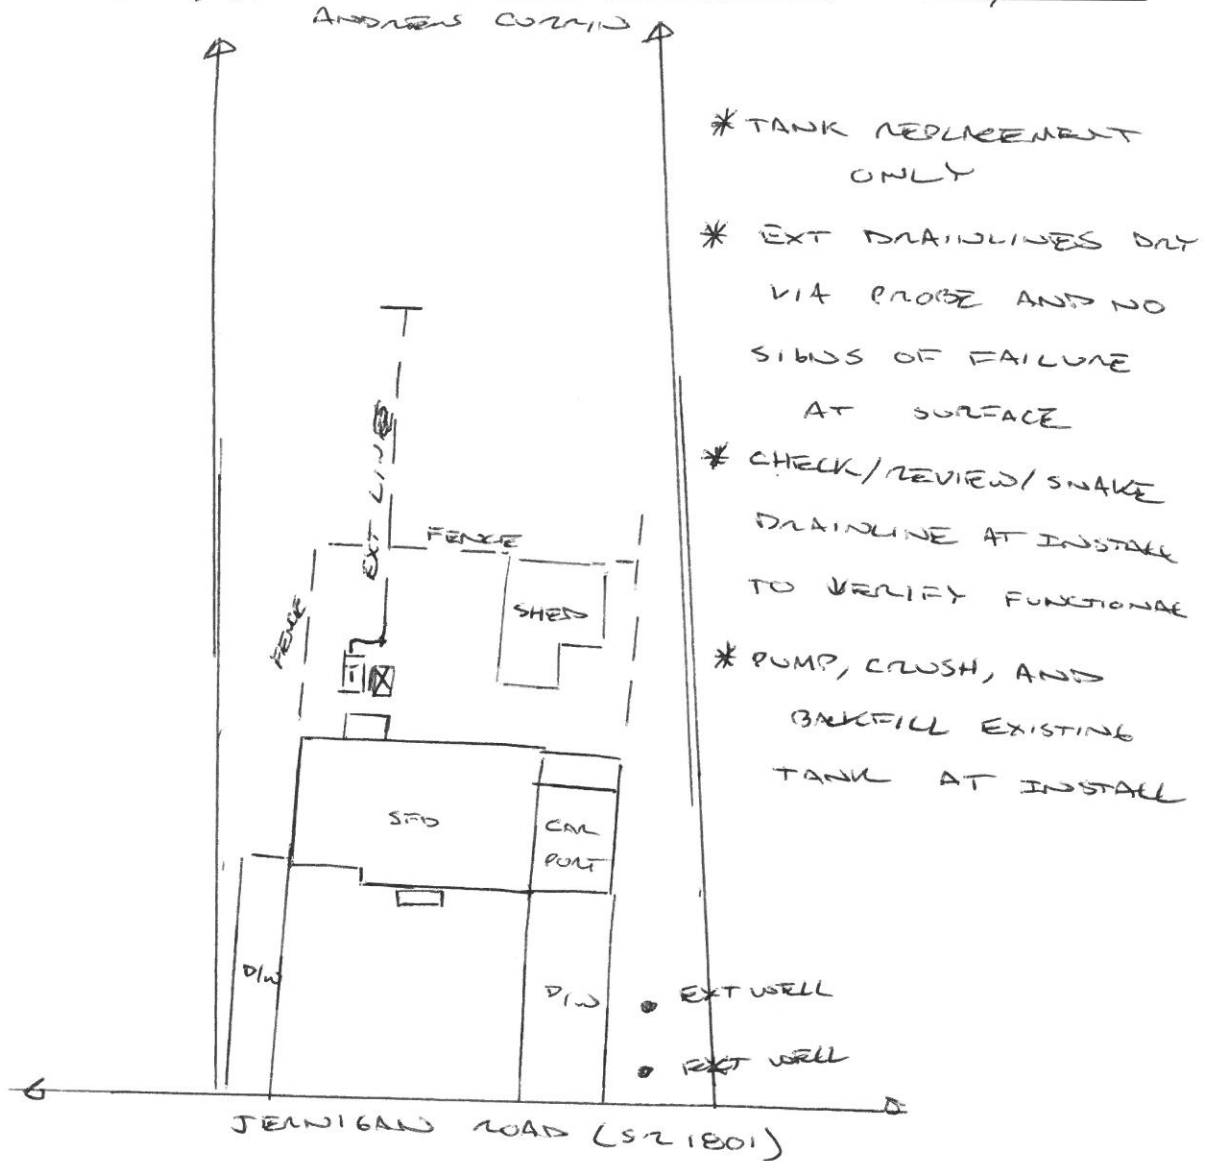 ANDREW CURRIN
* TANK REPLACEMENT
ONLY
* EXT DRAINLINES DRY
VIA PROBE AND NO
SIGNS OF FAILURE
AT SURFACE
* CHECK/REVIEW/SNAKE
DRAINLINE AT INSTALL
TO VERIFY FUNCTIONAL
* PUMP, CRUSH, AND
BACKFILL EXISTING
TANK AT INSTALL
EXT LINE
FENCE
FENCE
SHED
SFD
CAR
PORT
D/W
D/W
EXT WELL
EXT WELL
JERNIGAN ROAD (SR 1801)